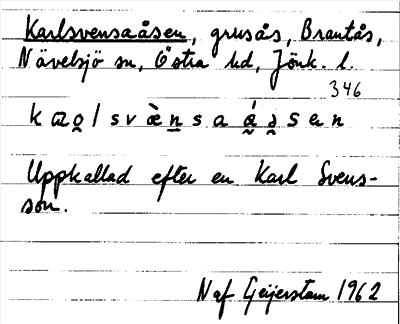 Karlsvensaåsen, grusås, Brantås,
Nävelsjö sn, Östra hd, Jönk. l.
346
Uppkallad efter en Karl Svens-
son.
N af Geijerstam 1962